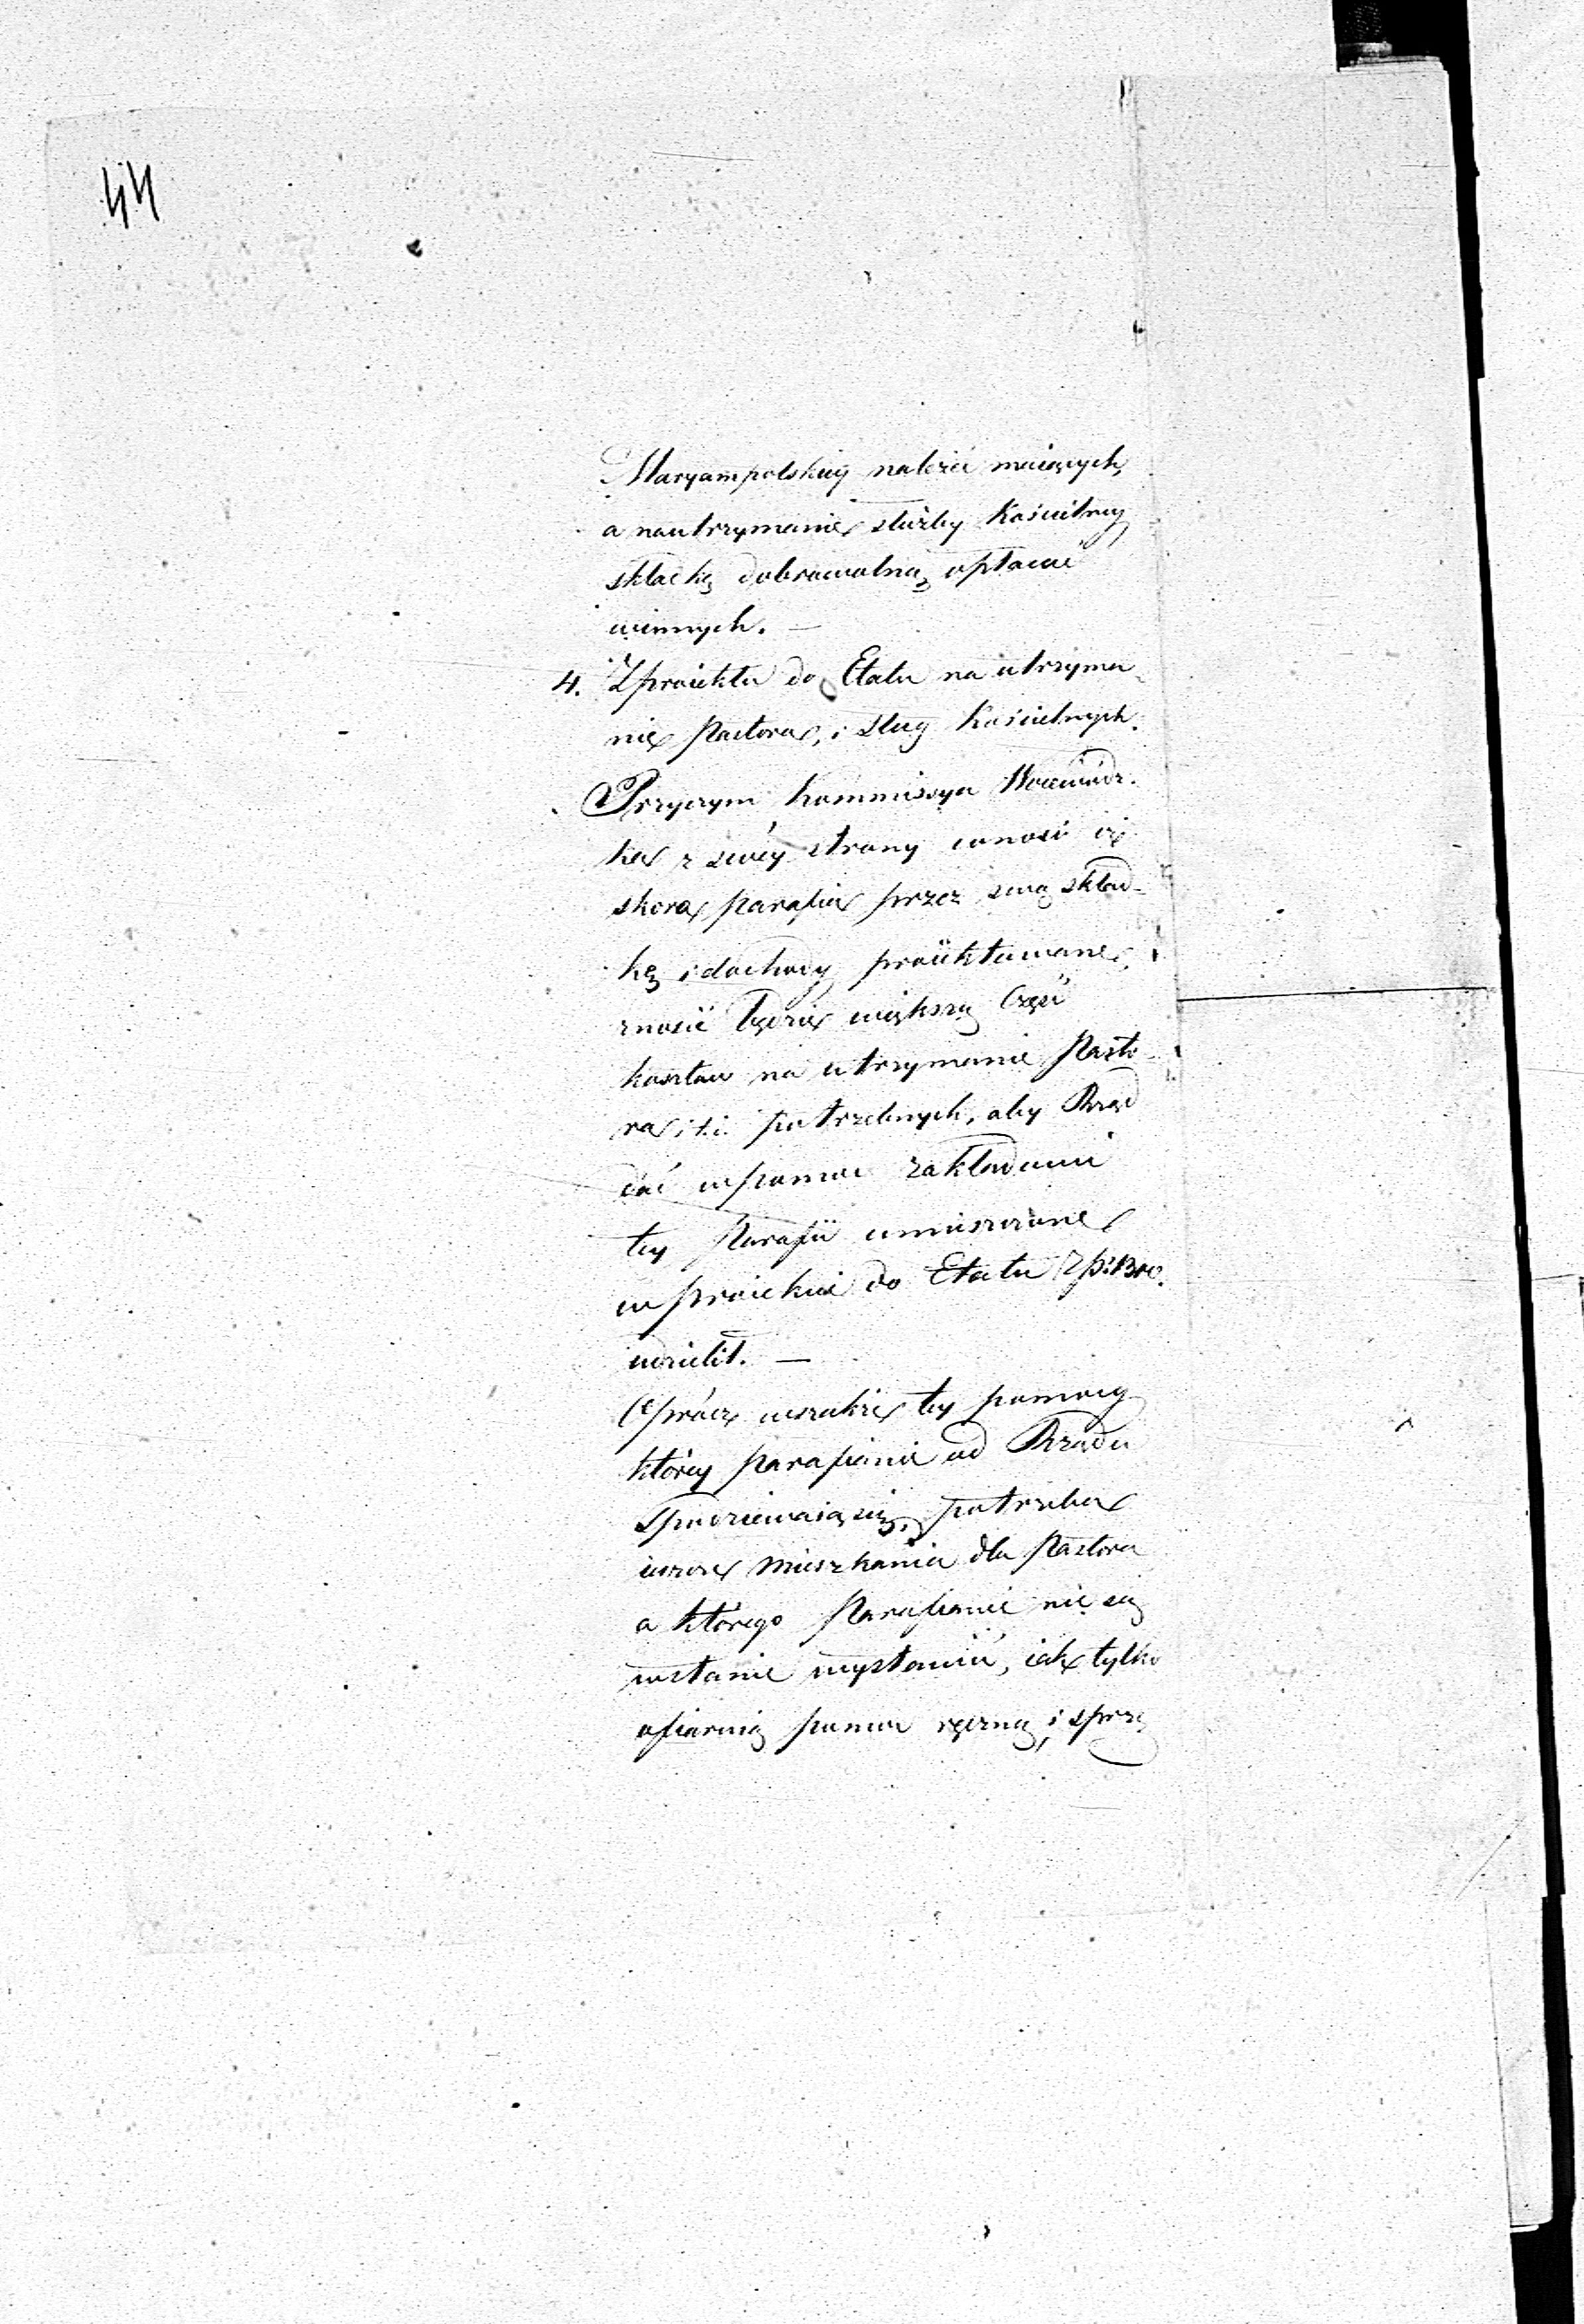 44
Maryampolskiey należeć maiących,
a na utrzymanie służby Kościelney
składkę dobrowolną opłacać
winnych. —
4. Z proiektu do Etatu na utrzyma-
nie Pastora, i Sług Kościelnych.
Przyczym Kommissya Woiewódz.
ka z swéy strony wnosi iż
skoro parafia przez swą skład-
kę i dochody proiektowane,
znosić będzie większą Część
kosztów na utrzymanie Pasto-
ra i t.i. potrzebnych, aby Rząd
dać w pomoc zakładowi
tey Parafii umieszczone
w proiekcie do Etatu
udzielił. —
Oprócz wszakże tey pomocy
którey parafianie od Rządu
Spodziewaią się, potrzeba
ieszcze Mieszkania dla Pastora
a którego Parafianie nie są
w stanie wystawić, iak tylko
ofiarują pomoc ręczną i sprzę